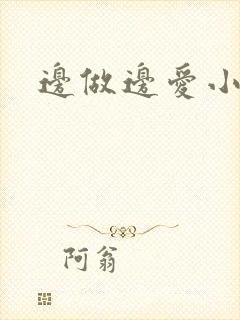 邊做邊愛小
阿翁